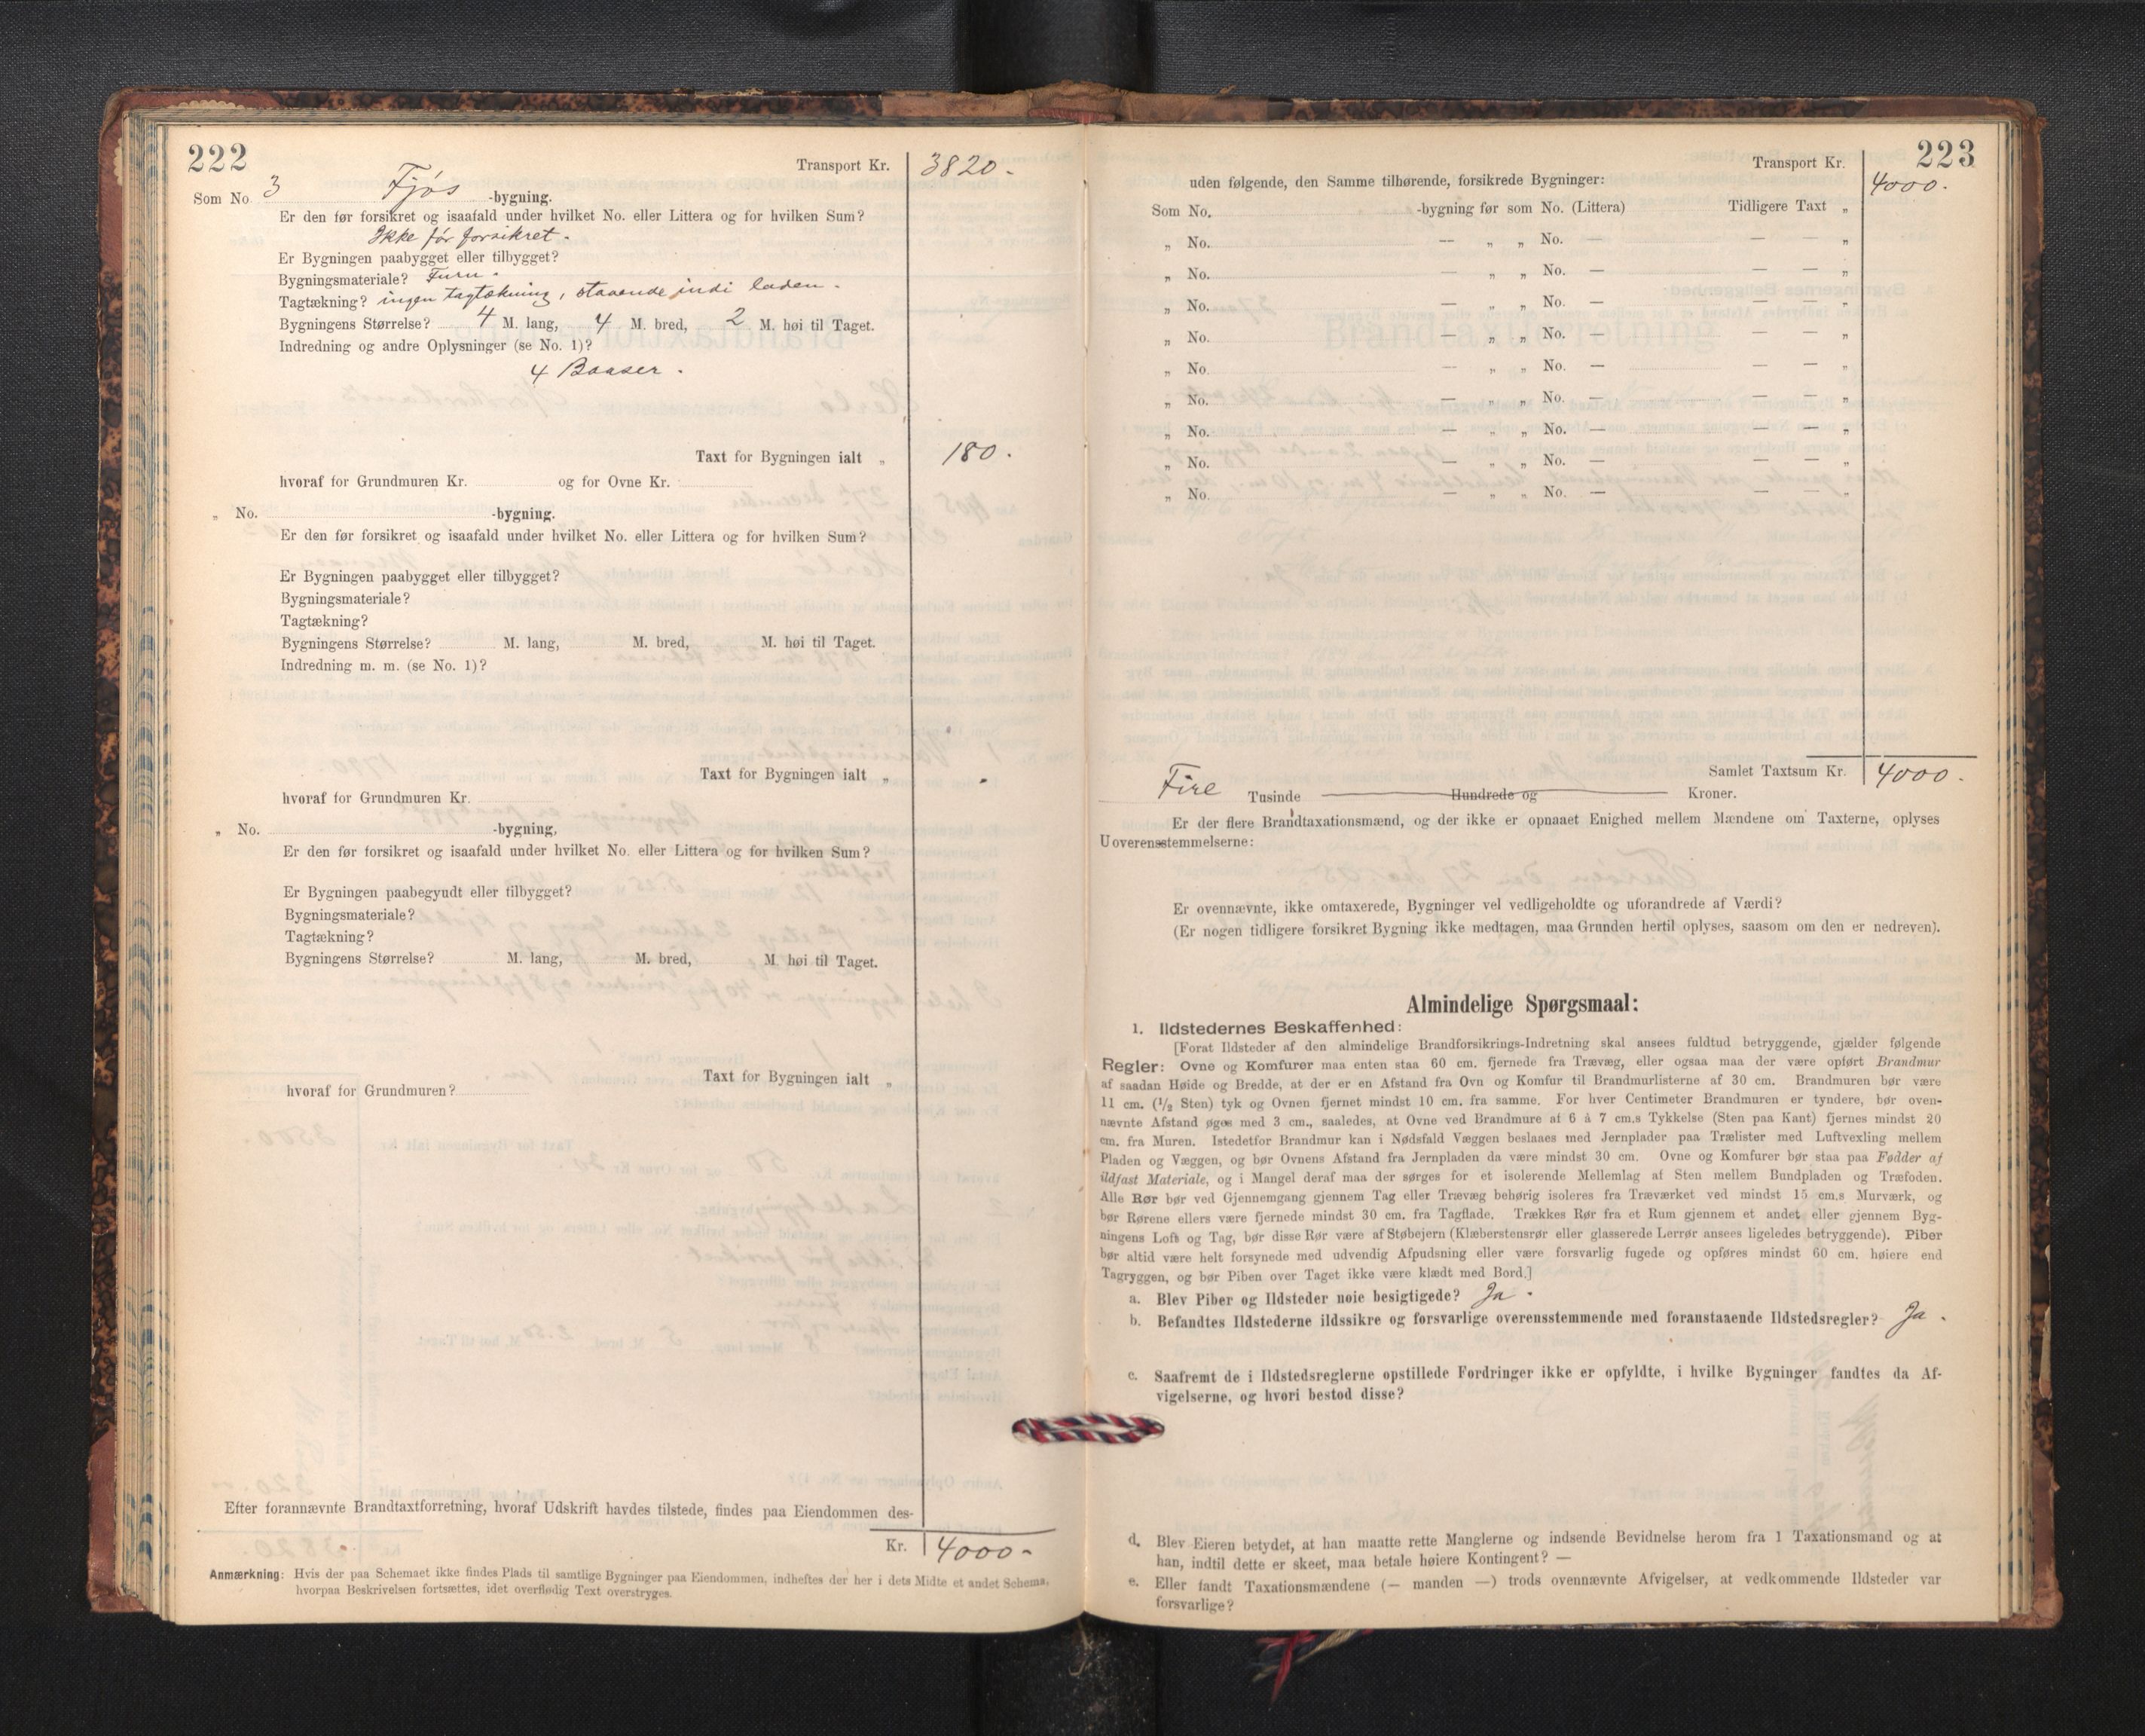 222
Transport Kr. 3820.
Som No. 3 Fjøs -bygning.
Er den før forsikret og isaafald under hvilket No. eller Littera og for hvilken Sum?
Ikke før forsikret.
Er Bygningen paabygget eller tilbygget?
Bygningsmateriale? Furu.
Tagtækning? ingen tagtækning, staaende indi laden.
Bygningens Størrelse? 4 M. lang, 4 M. bred, 2 M. høi til Taget.
Indredning og andre Oplysninger (se No. 1)?
4 Baaser.
Taxt for Bygningen ialt „ 180.
hvoraf for Grundmuren Kr. og for Ovne Kr.
„ No. -bygning.
Er den før forsikret og isaafald under hvilket No. eller Littera og for hvilken Sum?
Er Bygningen paabygget eller tilbygget?
Bygningsmateriale?
Tagtækning?
Bygningens Størrelse? M. lang, M. bred, M. høi til Taget.
Indredning m. m. (se No. 1)?
Taxt for Bygningen ialt „
hvoraf for Grundmuren Kr.
„ No. -bygning,
Er den før forsikret og isaafald under hvilket No. eller Littera og for hvilken Sum?
Er Bygningen paabegyndt eller tilbygget?
Bygningsmateriale?
Tagtækning?
Bygningens Størrelse? M. lang, M. bred, M. høi til Taget.
Taxt for Bygningen ialt „
hvoraf for Grundmuren?
Efter forannævnte Brandtaxtforretning, hvoraf Udskrift havdes tilstede, findes paa Eiendommen des-
Kr. 4000-
Anmærkning: Hvis der paa Schemaet ikke findes Plads til samtlige Bygninger paa Eiendommen, indheftes der her i dets Midte et andet Schema,
hvorpaa Beskrivelsen fortsættes, idet overflødig Text overstryges.
223
Transport Kr. 4000.
uden følgende, den Samme tilhørende, forsikrede Bygninger:
Som No. -bygning før som No. (Littera) Tidligere Taxt „
„ No. — „ „ No. — — — „
„ No. „ „ No. — — — „
„ No. — „ „ No. — — — „
„ No. — „ „ No. — — — „
„ No. — „ „ No. — — — „
„ No. — „ „ No. — — — „
„ No. — „ „ No. — — — „
„ No. — „ „ No. — — — „
„ No. — „ „ No. — — — „
Samlet Taxtsum Kr. 4000.
Fire Tusinde Hundrede og Kroner.
Er der flere Brandtaxationsmænd, og der ikke er opnaaet Enighed mellem Mændene om Taxterne, oplyses
Uoverensstemmelserne:
Er ovennævnte, ikke omtaxerede, Bygninger vel vedligeholdte og uforandrede af Værdi?
(Er nogen tidligere forsikret Bygning ikke medtagen, maa Grunden hertil oplyses, saasom om den er nedreven).
Almindelige Spørgsmaal:
1. Ildstedernes Beskaffenhed:
[Forat Ildsteder af den almindelige Brandforsikrings-Indretning skal ansees fuldtud betryggende, gjælder følgende
Regler: Ovne og Komfurer maa enten staa 60 cm. fjernede fra Trævæg, eller ogsaa maa der være opført Brandmur
af saadan Høide og Bredde, at der er en Afstand fra Ovn og Komfur til Brandmurlisterne af 30 cm. Brandmuren bør være
11 cm. (1/2 Sten) tyk og Ovnen fjernet mindst 10 cm. fra samme. For hver Centimeter Brandmuren er tyndere, bør oven-
nævnte Afstand øges med 3 cm., saaledes, at Ovne ved Brandmure af 6 à 7 cm.s Tykkelse (Sten paa Kant) fjernes mindst 20
cm. fra Muren. Istedetfor Brandmur kan i Nødsfald Væggen beslaaes med Jernplader paa Trælister med Luftvexling mellem
Pladen og Væggen, og bør Ovnens Afstand fra Jernpladen da være mindst 30 cm. Ovne og Komfurer bør staa paa Fødder af
ildfast Materiale, og i Mangel deraf maa der sørges for et isolerende Mellemlag af Sten mellem Bundpladen og Træfoden.
Alle Rør bør ved Gjennemgang gjennem Tag eller Trævæg behørig isoleres fra Træværket ved mindst 15 cm.s Murværk, og
bør Rørene ellers være fjernede mindst 30 cm. fra Tagflade. Trækkes Rør fra et Rum gjennem et andet eller gjennem Byg-
ningens Loft og Tag, bør disse Rør være af Støbejern (Klæberstensrør eller glasserede Lerrør ansees ligeledes betryggende). Piber
bør altid være helt forsynede med udvendig Afpudsning eller være forsvarlig fugede og opføres mindst 60 cm. høiere end
Tagryggen, og bør Piben over Taget ikke være klædt med Bord.]
a. Blev Piber og Ildsteder nøie besigtigede? Ja.
b. Befandtes Ildstederne ildssikre og forsvarlige overensstemmende med foranstaaende Ildstedsregler? Ja.
c. Saafremt de i Ildstedsreglerne opstillede Fordringer ikke er opfyldte, i hvilke Bygninger fandtes da Af-
vigelserne, og hvori bestod disse?
d. Blev Eieren betydet, at han maatte rette Manglerne og indsende Bevidnelse herom fra 1 Taxationsmand og at
han, indtil dette er skeet, maa betale høiere Kontingent? —
e. Eller fandt Taxationsmændene (— manden —) trods ovennævnte Afvigelser, at vedkommende Ildsteder var
forsvarlige?